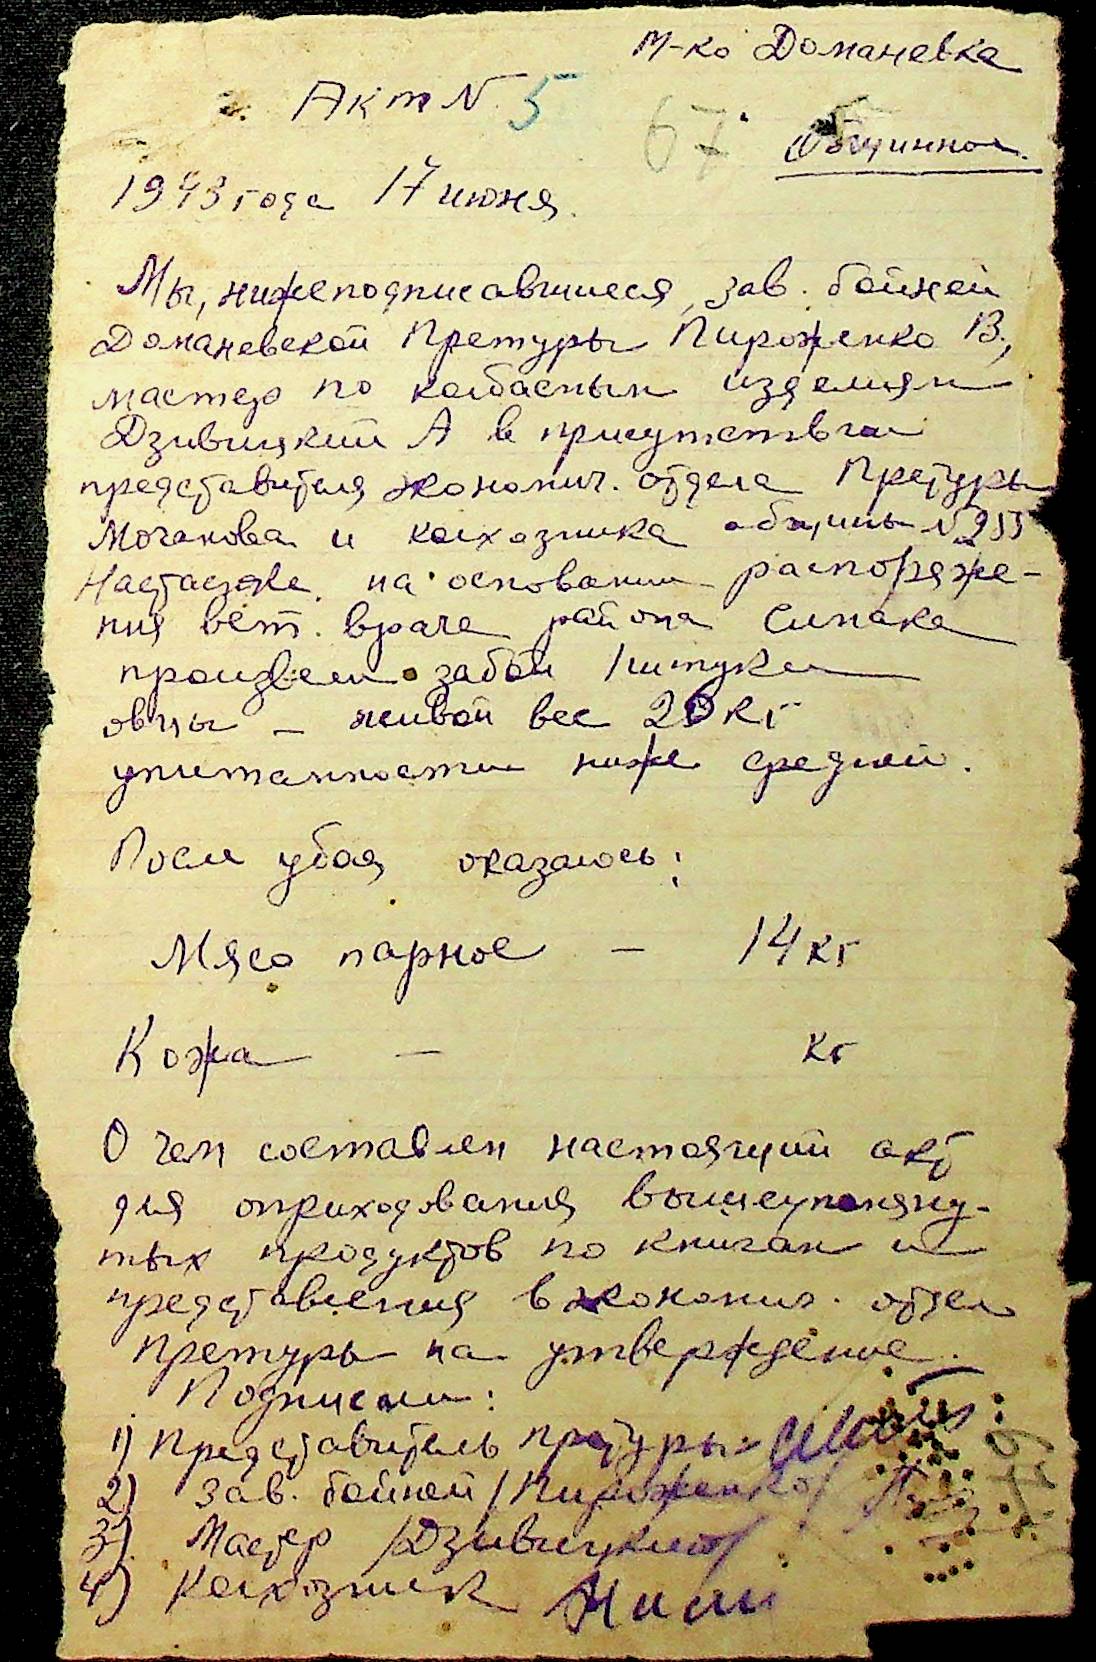 М-ко Доманевка
Акт N 5
67
Общинное.
1943 года 17 июня.
Мы, нижеподписавшиеся, зав. бойней
Доманевской Претуры Пироженко В.,
мастер по колбасным изделиям
Дзивицкий А в присутствии
представителя экономич. отдела Претуры
Мочанова и колхозника общины N
на основании распоряже-
ния вет. врача района Симака
произвели забой 1 штуки
овцы – живой вес 20 кг
упитанности ниже средней.
После убоя оказалось:
Мясо парное – 14 кг
Кожа – кг
О чем составлен настоящий акт
для оприходования вышеупомяну-
тых продуктов по книгам и
представления в экономич. отдел
претуры на утверждение.
Подписали:
1) Представитель претуры –
2) Зав. бойней /Пироженко/
3) Мастер /Дзивицкий/
4) Колхозник